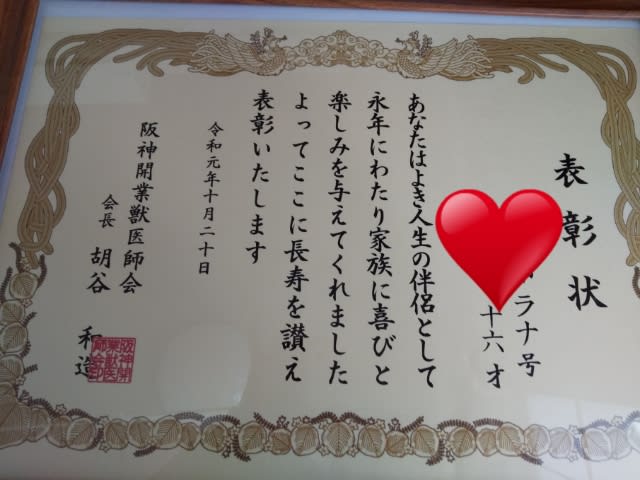 表彰状
ラナ号
十六才
あなたはよき人生の伴侶として
永年にわたり家族に喜びと
楽しみを与えてくれました
よってここに長寿を讃え
表彰いたします
令和元年十月二十日
阪神開業獣医師会
会長 胡谷和造